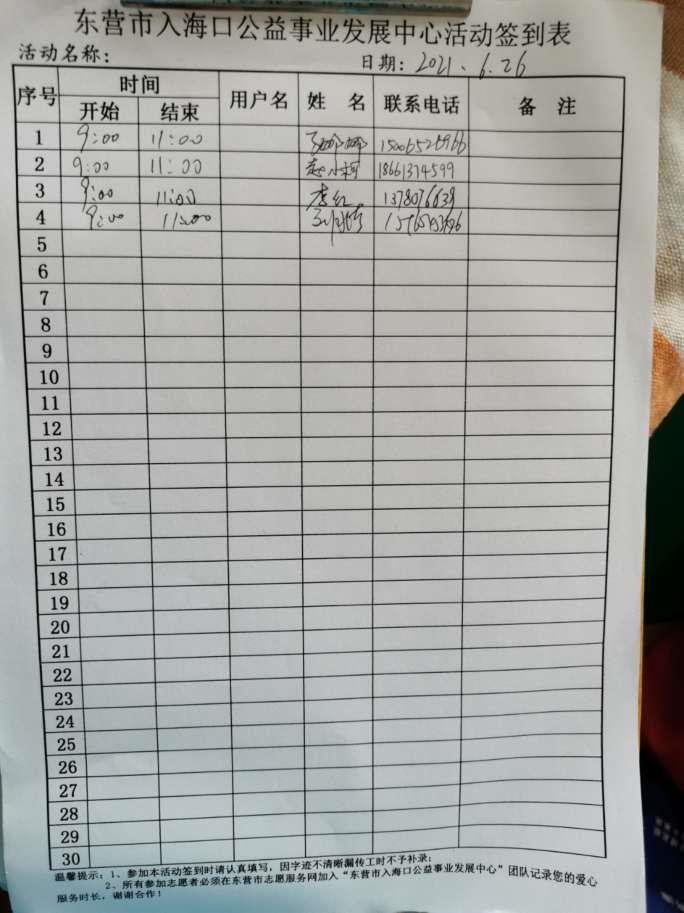 东营市入海口公益事业发展中心活动签到表
活动名称： 日期：2021.6.26
序号 时间 用户名 姓 名 联系电话 备 注
开始 结束
1 9:00 11:00
2 9:00 11:00 赵小柯 18661374599
3 9:00 11:00 李红
4 9:00 11:00
5
6
7
8
9
10
11
12
13
14
15
16
17
18
19
20
21
22
23
24
25
26
27
28
29
30
温馨提示：1、参加本活动签到时请认真填写，因字迹不清晰漏传工时不予补录；
2、所有参加志愿者必须在东营市志愿服务网加入“东营市入海口公益事业发展中心”团队记录您的爱心
服务时长，谢谢合作！